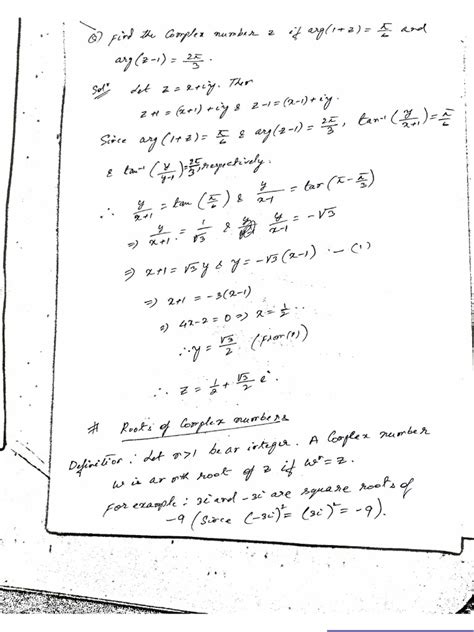 Q) Find the Complex number z if arg(1+z) = π/6 and
arg(z-1) = 2π/3.
Solⁿ Let z = x+iy. Then
z+1 = (x+1)+iy & z-1 = (x-1)+iy.
Since arg(1+z) = π/6 & arg(z-1) = 2π/3, tan⁻¹(y/x+1) = π/6
& tan⁻¹(y/x-1) = 2π/3, respectively.
∴ y/x+1 = tan(π/6) & y/x-1 = tan(π-π/3)
⇒ y/x+1 = 1/√3 & y/x-1 = -√3
⇒ x+1 = √3y & y = -√3(x-1) -(1)
⇒ x+1 = -3(x-1)
⇒ 4x-2=0 ⇒ x = 1/2.
∴ y = √3/2 (From(1))
∴ z = 1/2 + √3/2 i.
# Roots of Complex numbers
Definition: Let n>1 be an integer. A Complex number
w is an nth root of z if wⁿ=z.
For example: 3i and -3i are square roots of
-9 (Since (-3i)² = (3i)² = -9).